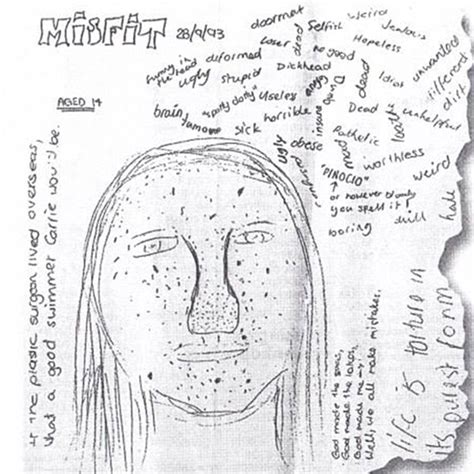 MISFIT
28/9/93
AGED 14
doormat
Selfish
weird
Jealous
loser
dead
no good
Hopeless
unwanted
different
dirt
deformed
ugly
stupid
Dickhead
dead
Idiot
"spotty dotty"
useless
brain
tumour
sick
horrible
insane
Dead
unhelpful
Pathetic
loathe
ugly
obese
mad
worthless
weird
"PINOCIO"
or however bloody
you spell it!
boring
dull
hate
If the plastic surgeon lived overseas,
what a good swimmer Carrie would be.
God made the seas,
God made the lakes,
God made me →
Well, we all make mistakes.
life is torture in
its purest form